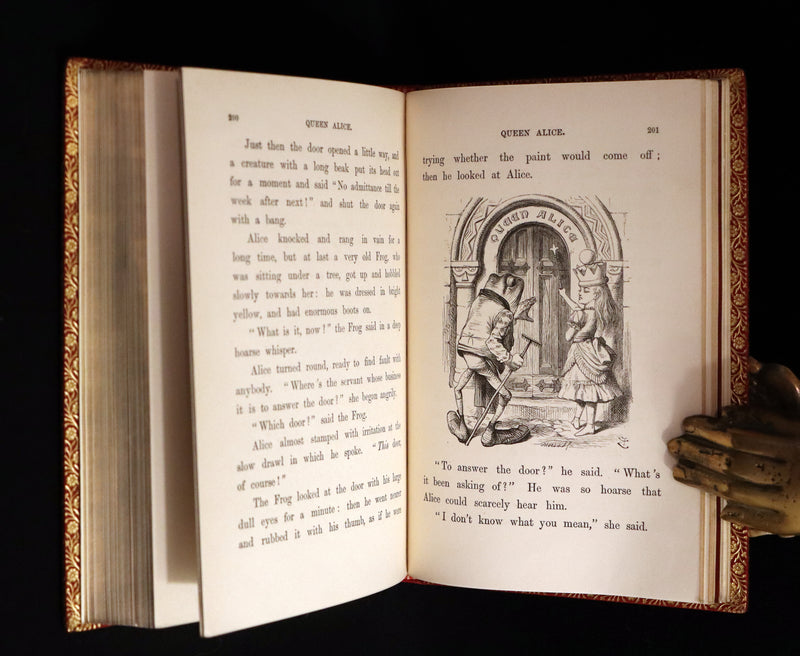 200
QUEEN ALICE.
Just then the door opened a little way, and
a creature with a long beak put its head out
for a moment and said "No admittance till the
week after next!" and shut the door again
with a bang.
Alice knocked and rang in vain for a
long time, but at last a very old Frog, who
was sitting under a tree, got up and hobbled
slowly towards her: he was dressed in bright
yellow, and had enormous boots on.
"What is it, now?" the Frog said in a deep
hoarse whisper.
Alice turned round, ready to find fault with
anybody. "Where's the servant whose business
it is to answer the door?" she began angrily.
"Which door?" said the Frog.
Alice almost stamped with irritation at the
slow drawl in which he spoke. "This door,
of course!"
The Frog looked at the door with his large
dull eyes for a minute: then he went nearer
and rubbed it with his thumb, as if he were
QUEEN ALICE.
201
trying whether the paint would come off;
then he looked at Alice.
QUEEN ALICE
"To answer the door?" he said. "What's
it been asking of?" He was so hoarse that
Alice could scarcely hear him.
"I don't know what you mean," she said.